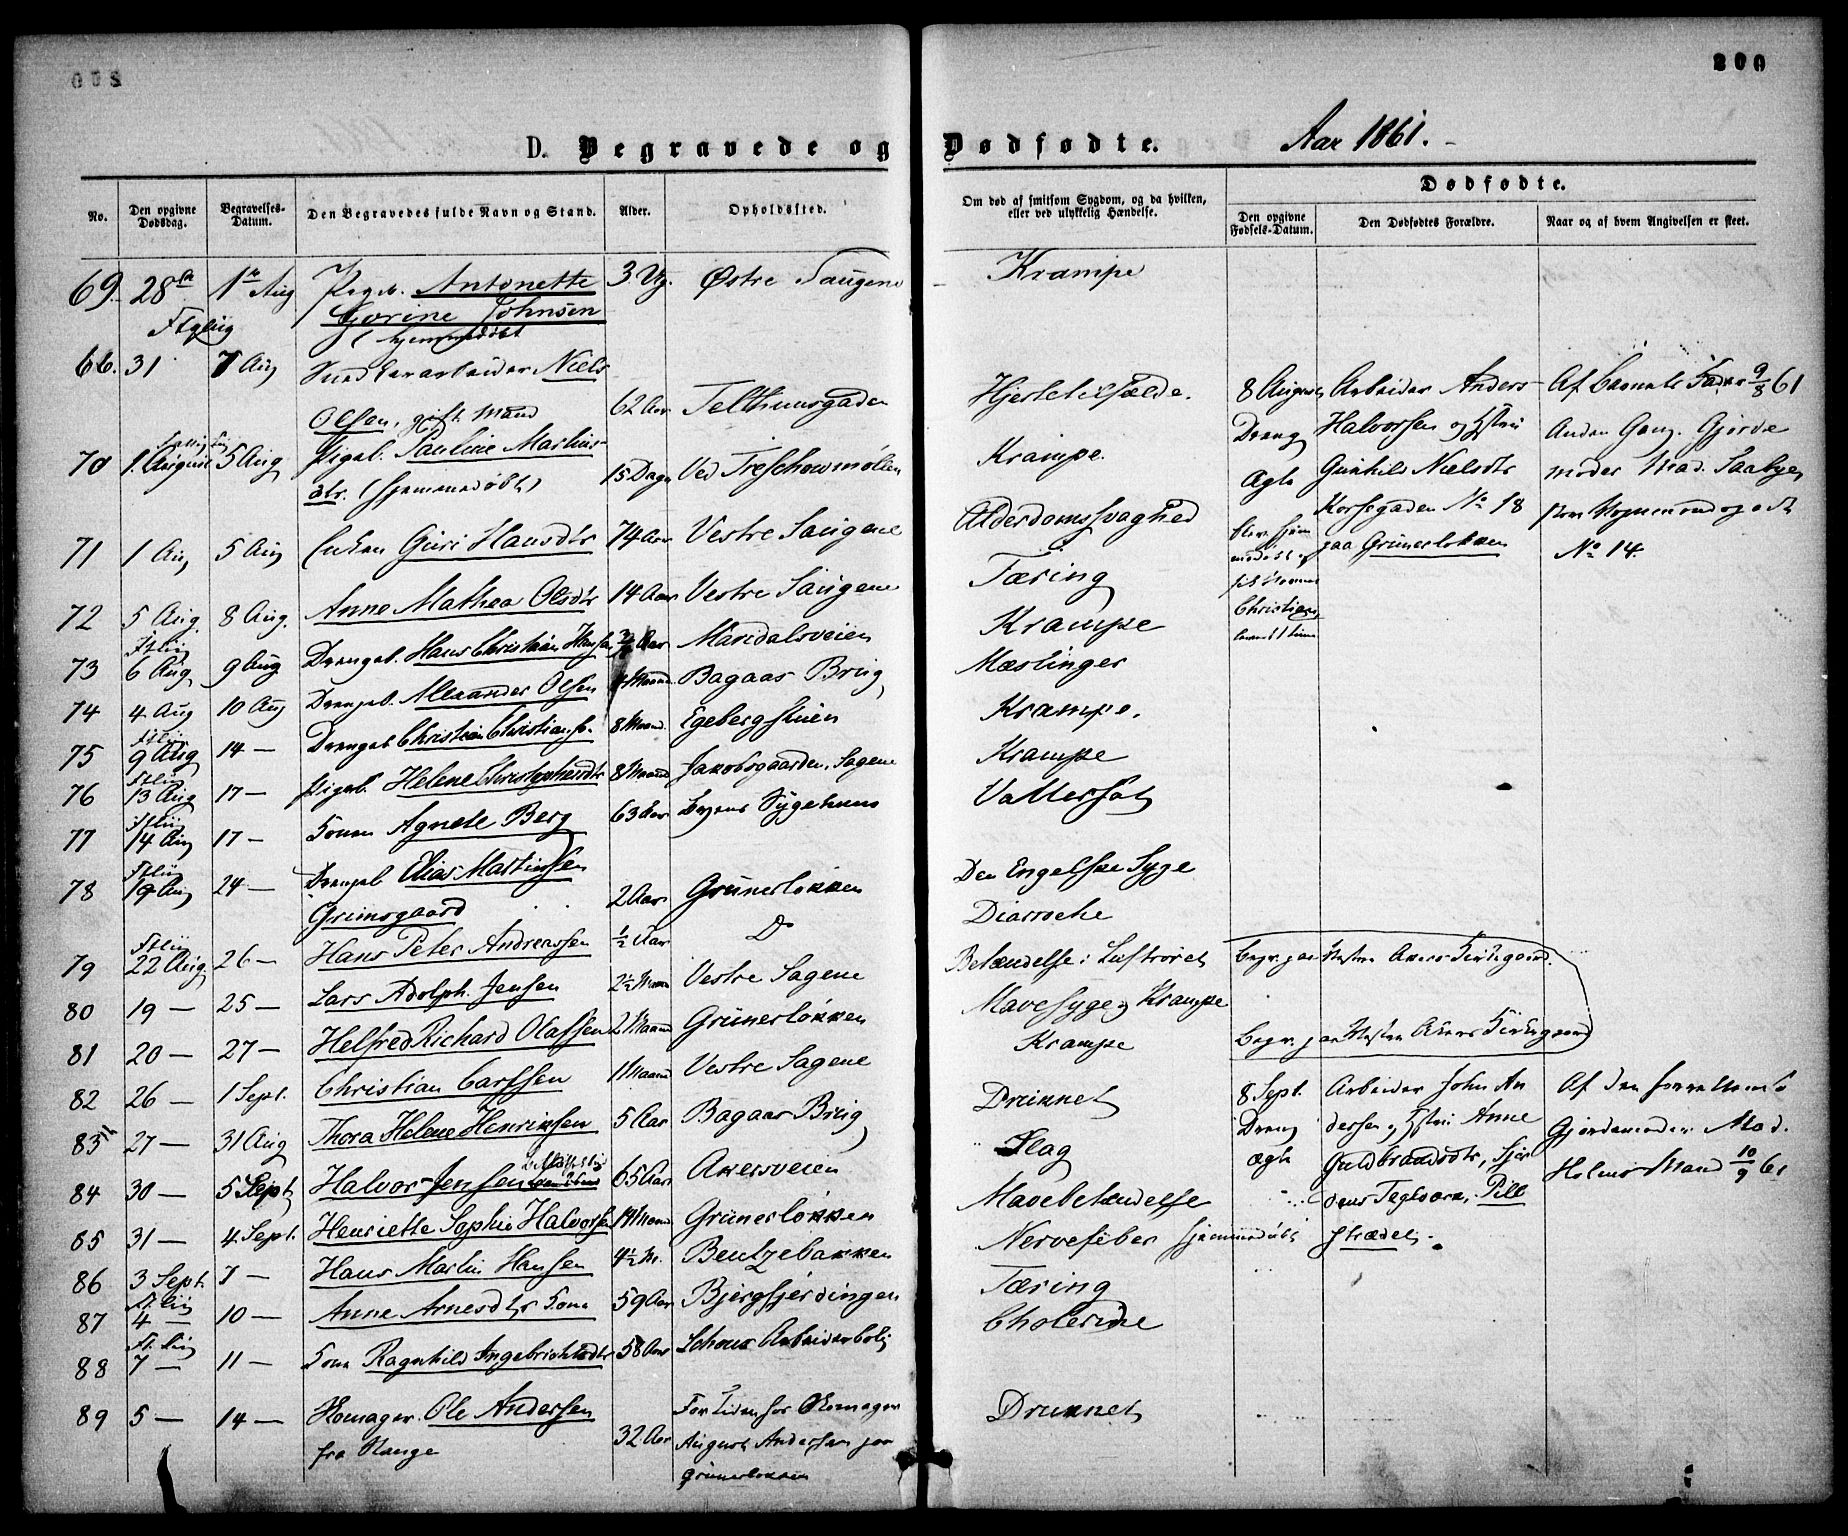 200
D. Begravede og Dødfødte. Aar 1861.
No.
Den opgivne Dødsdag.
Begravelses-Datum.
Den Begravedes fulde Navn og Stand.
Alder.
Opholdssted.
Om død af smitsom Sygdom, og da hvilken, eller ved ulykkelig Hændelse.
Dødfødte.
Den opgivne Fødsels-Datum.
Den Dødfødtes Forældre.
Naar og af hvem Angivelsen er skeet.
69. 28de 1ste Aug Pigeb. Antonette 3 Ug. Østre Saugene Krampe
Gorine Johnsen
(hjemmedøbt
66. 31 7 Aug Niels
Olsen, gift Mand 62 Aar Telthuusgaden
70 1. August 5 Aug Pigeb. Pauline Martins-
dtr. (hjemmedøbt) 15 Dage Ved Treschowmøllen Krampe.
71 1 Aug 5 Aug Enken Guri Hansdtr 74 Aar Vestre Saugene Alderdomssvaghed
72 5 Aug. 8 Aug. Anne Mathea Olsdtr 14 Aar Vestre Saugene Tæring
73 6 Aug 9 Aug Drengeb. Hans Christian Hansen Aar Maridalsveien Krampe
74 4 Aug 10 Aug Drengeb. Alexander Olsen Maan. Bagaas Brug Mæslinger
75 9 Aug 14 — Drengeb. Christian Christians. 8 Maan. Egebergstuen Krampe.
76 13 Aug 17 — Pigeb. Helene Christophersdtr 8 Maan. Jakobsgaarden, Sagene Krampe
77 14 Aug 17 — Konen Agnete Berg 63 Aar Sygehuus Vattersot
78 19 Aug 24 — Drengeb. Elias Martinssen
Grimsgaard 2 Aar Grünerløkken Den Engelske Syge
79 22 Aug. 26 — Hans Peter Andreassen ½ Aar Do Diarroche
80 19 — 25 — Lars Adolph. Jensen 2½ Maan Vestre Sagene Betændelse i Luftrøret
81 20 — 27 — Helfred Richard Olafsen 2 Maan Grünerløkken Mavesyge og Krampe
82 26 — 1 Sept. Christian Carlsen 1 Maan Vestre Sagene Krampe
83 27 — 31 Aug Thora Helene Henriksen 5 Aar Bagaas Brug Druknet
84 30 — 5 Sept. Halvor Jensen 65 Aar Akersveien Slag
85 31 — 4 Sept. Henriette Sophie Halvorsen Maan Grünerløkken Mavebetændelse
86 3 Sept. 7 — Hans Martin Hansen 4½ M. Bentzebakken Nervefeber hjemmedøbt
87 4 — 10 — Anne Arnesdtr Kone 59 Aar Bjergfjerdingen Tæring
88 7 — 11 — Kone Ragnhild Ingebrichtsdtr 58 Aar Schous Arbeiderbolig Cholerine
89 5 — 14 — Skomager Ole Andersen 32 Aar For Tiden hos Skomager Druknet
fra Stange
August Andersen paa
Grünerløkken
Hjertetilfælde.
8 August Arbeider Anders
Dreng Halvorssen og Hustru
Ægte Gunhild Nielsdtr
Korsegaden No 18
paa Grünerløkken
Christian
Af Barnets Fader 9/8 61
Anden Gang. Gjorde
moder Mad. Saabye,
No 14.
Begr. paa Vestre Akers Kirkegaard.
Begr. paa Vestre Akers Kirkegaard
8 Sept. Arbeider John An
Dreng dersen og Hustru Anne
Ægte Guldbrandsdtr,
Teglværk, Pile
strædet.
Af den forrettende
Gjordemoder Mad.
Holmstrand 10/9 61